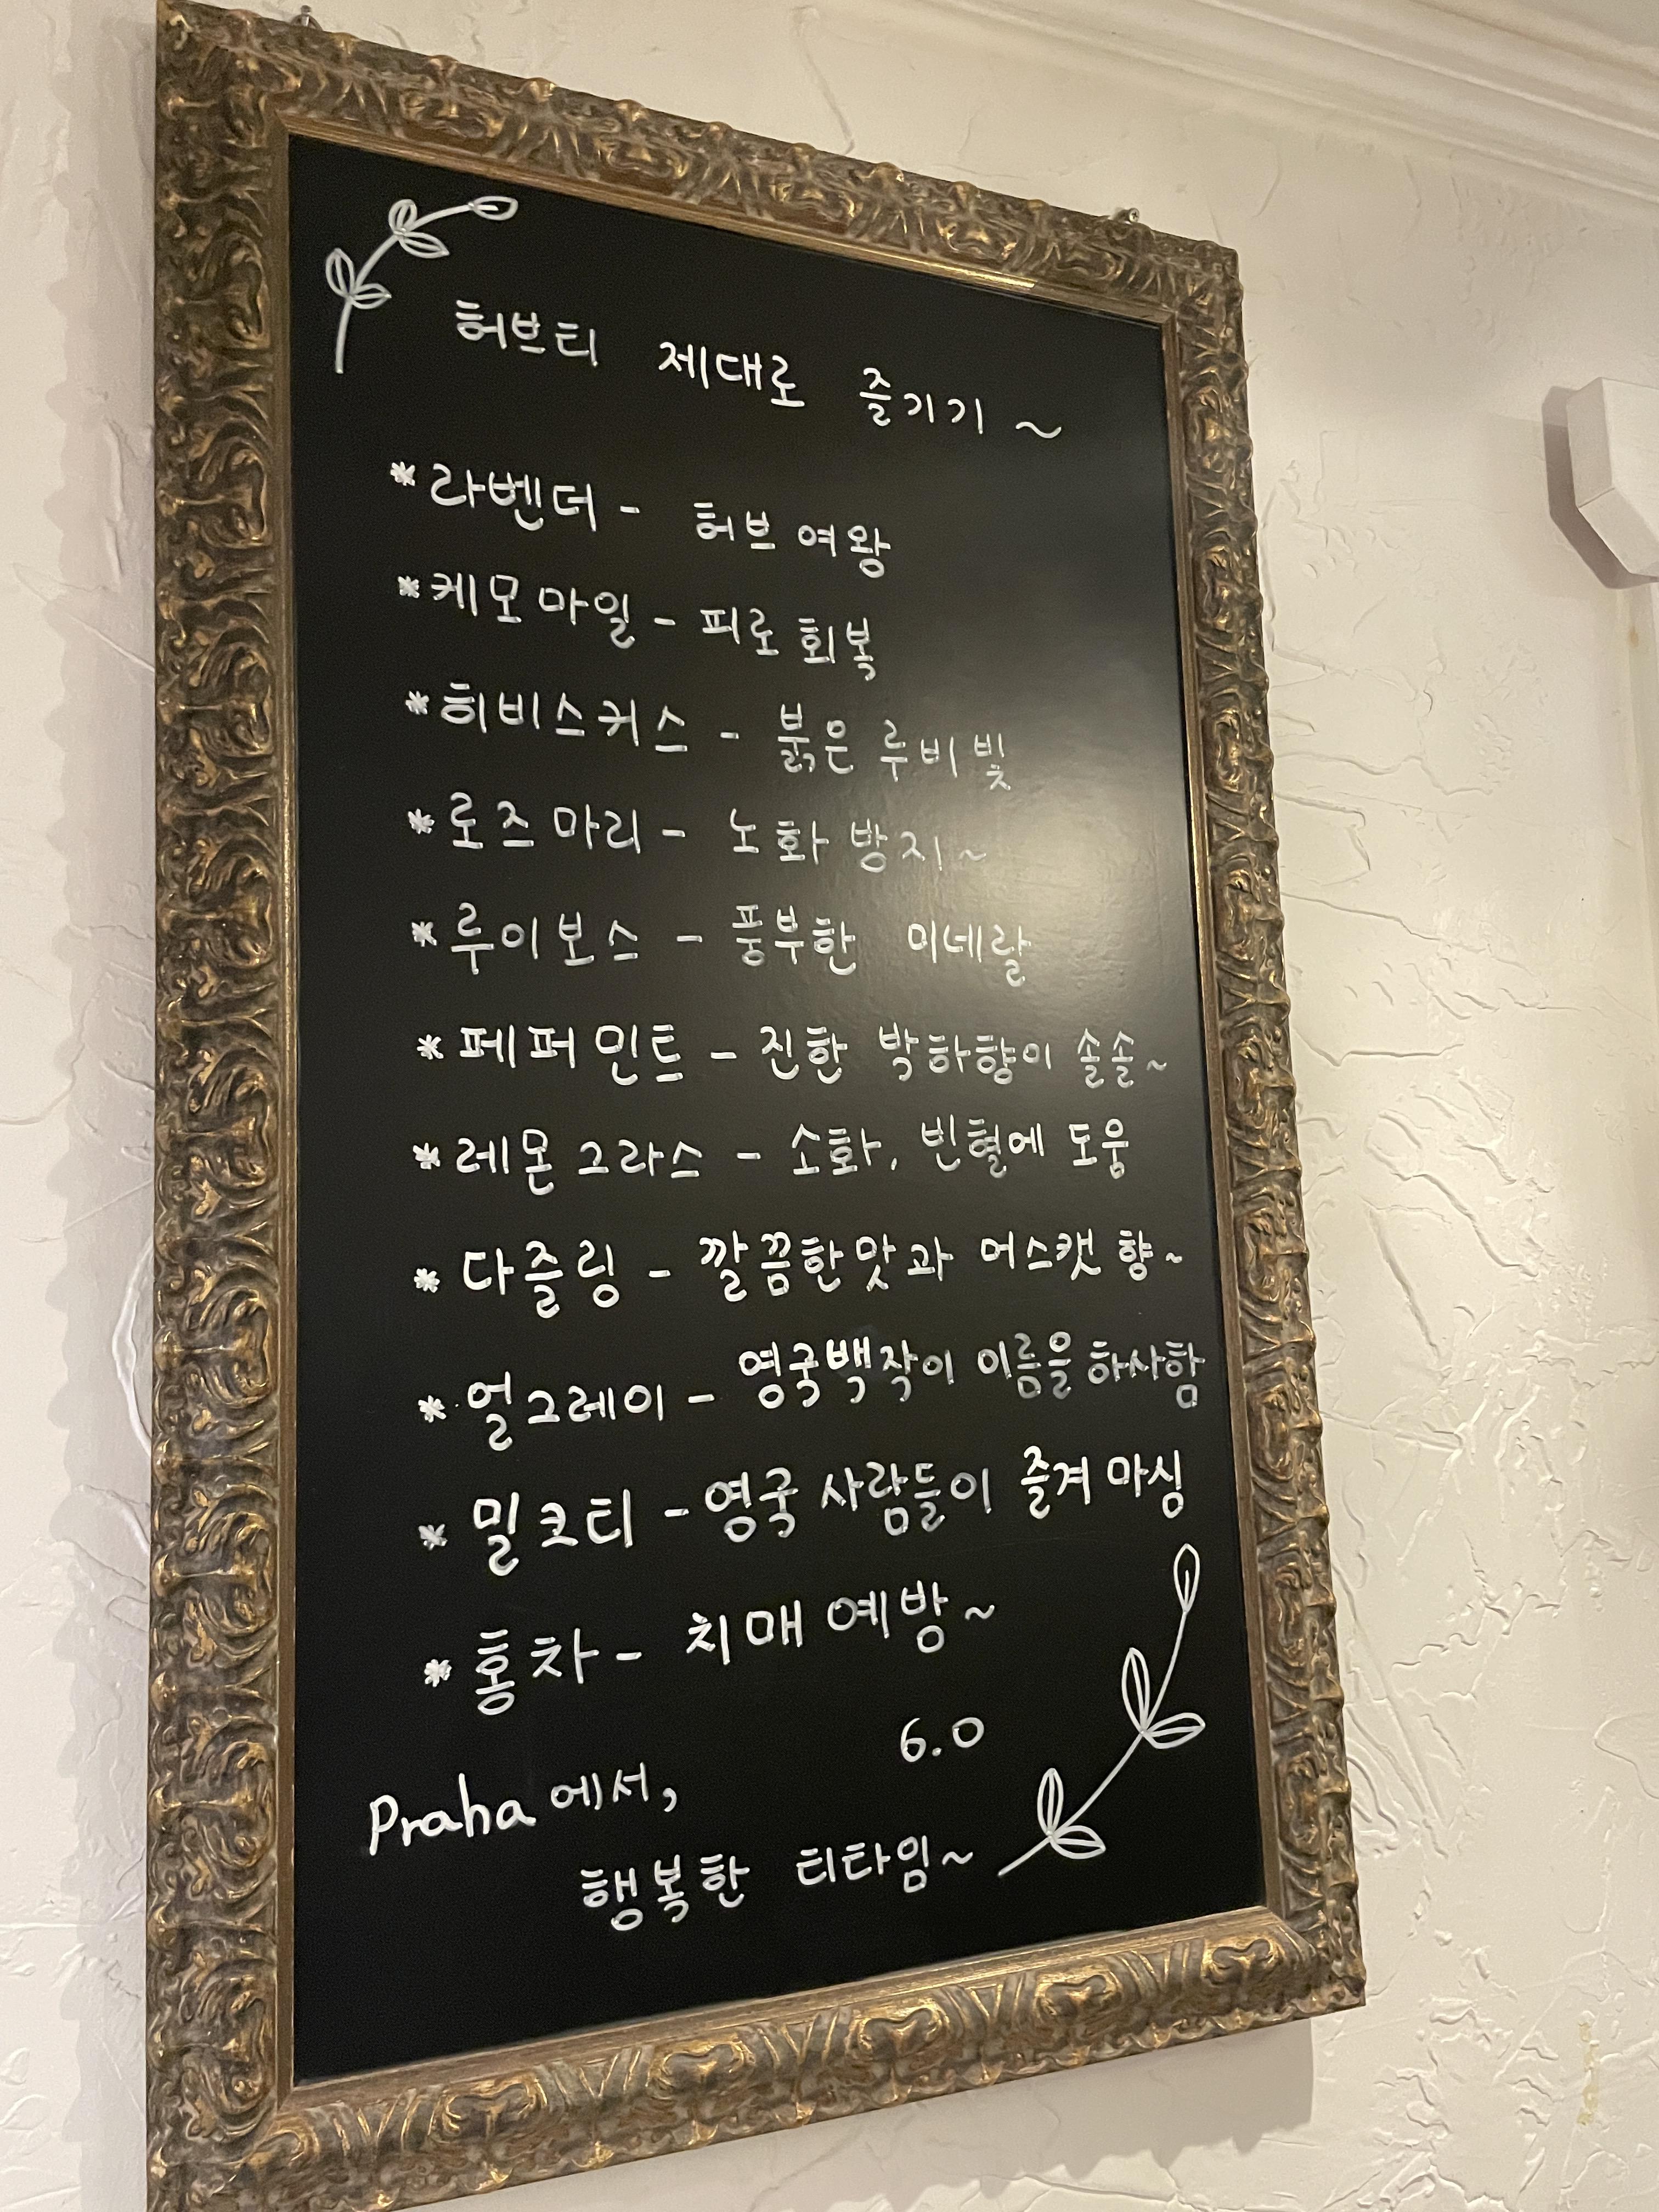 허브티 제대로 즐기기 ~
* 라벤더 - 허브 여왕
* 케모마일 - 피로 회복
* 히비스커스 - 붉은 루비 빛
* 로즈마리 - 노화 방지~
* 루이보스 - 풍부한 미네랄
* 페퍼민트 - 진한 박하향이 솔솔~
* 레몬그라스 - 소화, 빈혈에 도움
* 다즐링 - 깔끔한 맛과 머스캣 향~
* 얼그레이 - 영국백작이 이름을 하사함
* 밀크티 - 영국 사람들이 즐겨 마심
* 홍차 - 치매 예방~
6.0
Praha에서,
행복한 티타임~